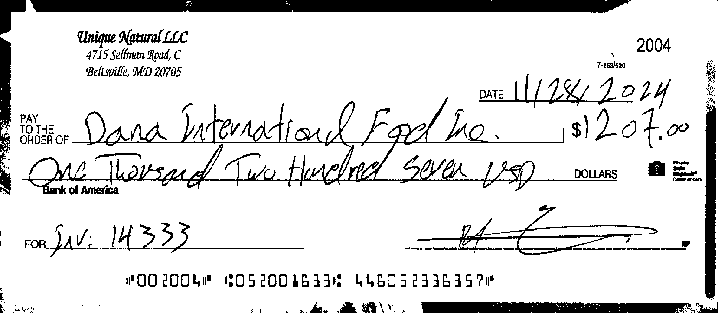 Unique Natural LLC
2004
4715 Sellman Road, C
Beltsville, MD 20705
DATE 11/28/2024
PAY TO THE ORDER OF Dana International Food Inc. $1207.00
One Thousand Two Hundred Seven USD DOLLARS
Bank of America
FOR Inv: 14333
⑈002004⑈ ⑆052001633⑆ 446052336357⑈